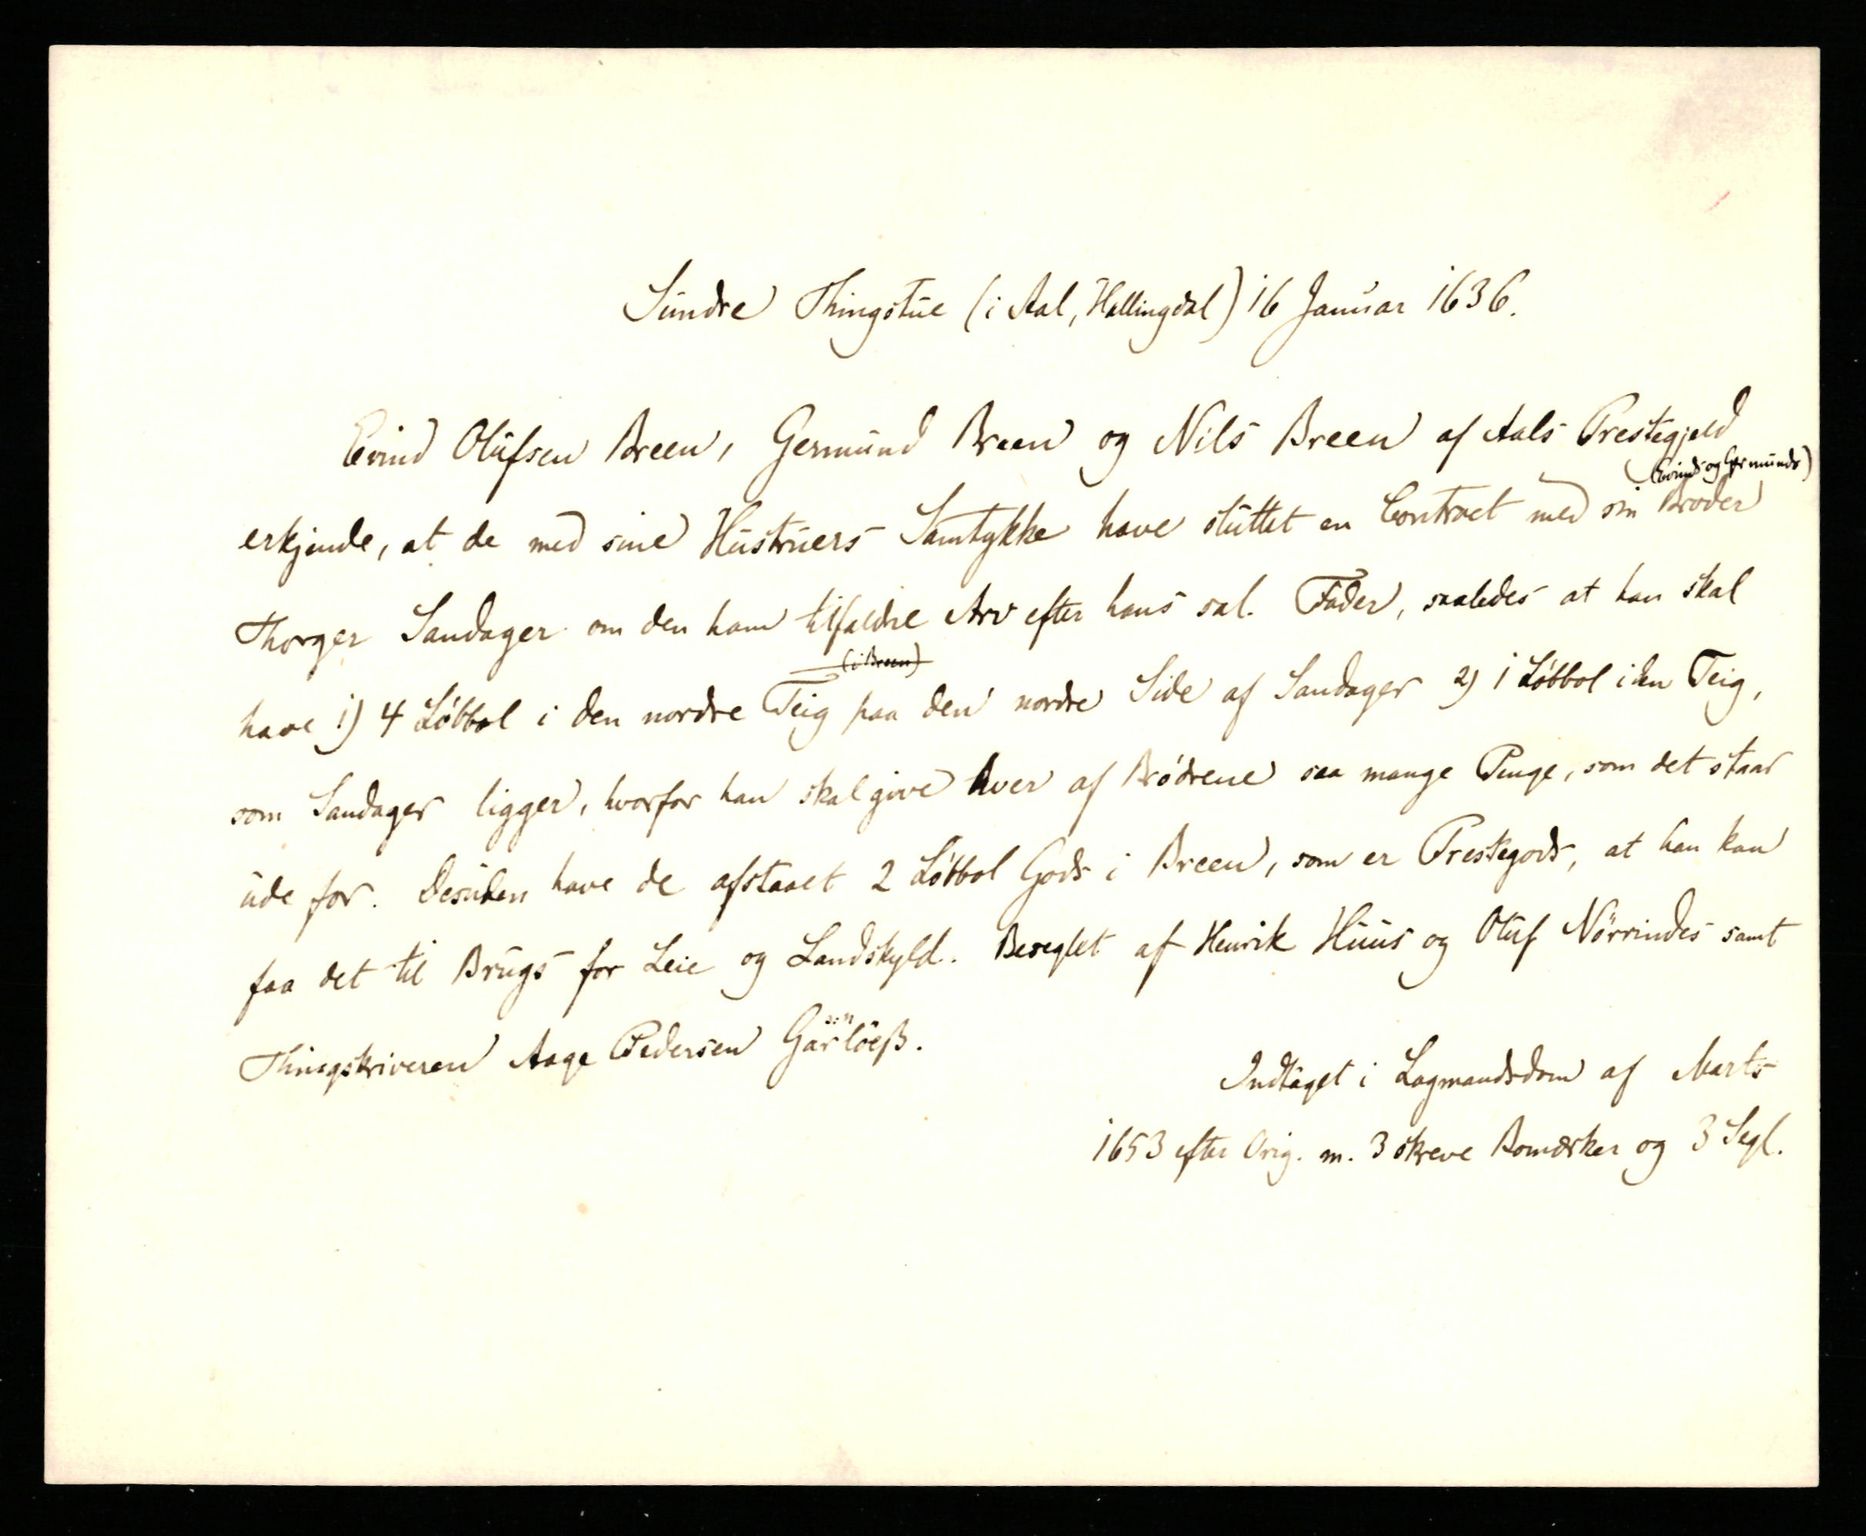 Sundre Thingstue (i Aal, Hallingdal) 16 Januar 1636.
Evind Olufsen Breen, Germund Breen og Nils Breen af Aals Prestegjeld
(Evinds og Germunds)
erkjende, at de med sine Hustruers Samtykke have sluttet en Contract med sin Broder
Thorger Sandager om den ham tilfaldne Arv efter hans sal. Fader, saaledes at han skal
(i Breen)
have 1) 4 Löbbol i den nordre Teig paa den nordre Side af Sandager 2) 1 Löbbol i den Teig,
som Sandager ligger, hvorfor han skal give hver af Brödrene saa mange Penge, som det staar
ude for. Desuden have de afstaaet 2 Löbbol Gods i Breen, som er Prestegods, at han kan
faa det til Brugs for Leie og Landskyld. Beseglet af Henrik Huus og Oluf Nörrindes samt
Thingskriveren Aage Pedersen Garlöeß.
Indtaget i Lagmandsdom af Marts
1653 efter Orig. m. 3 skrevne Bomærker og 3 Segl.